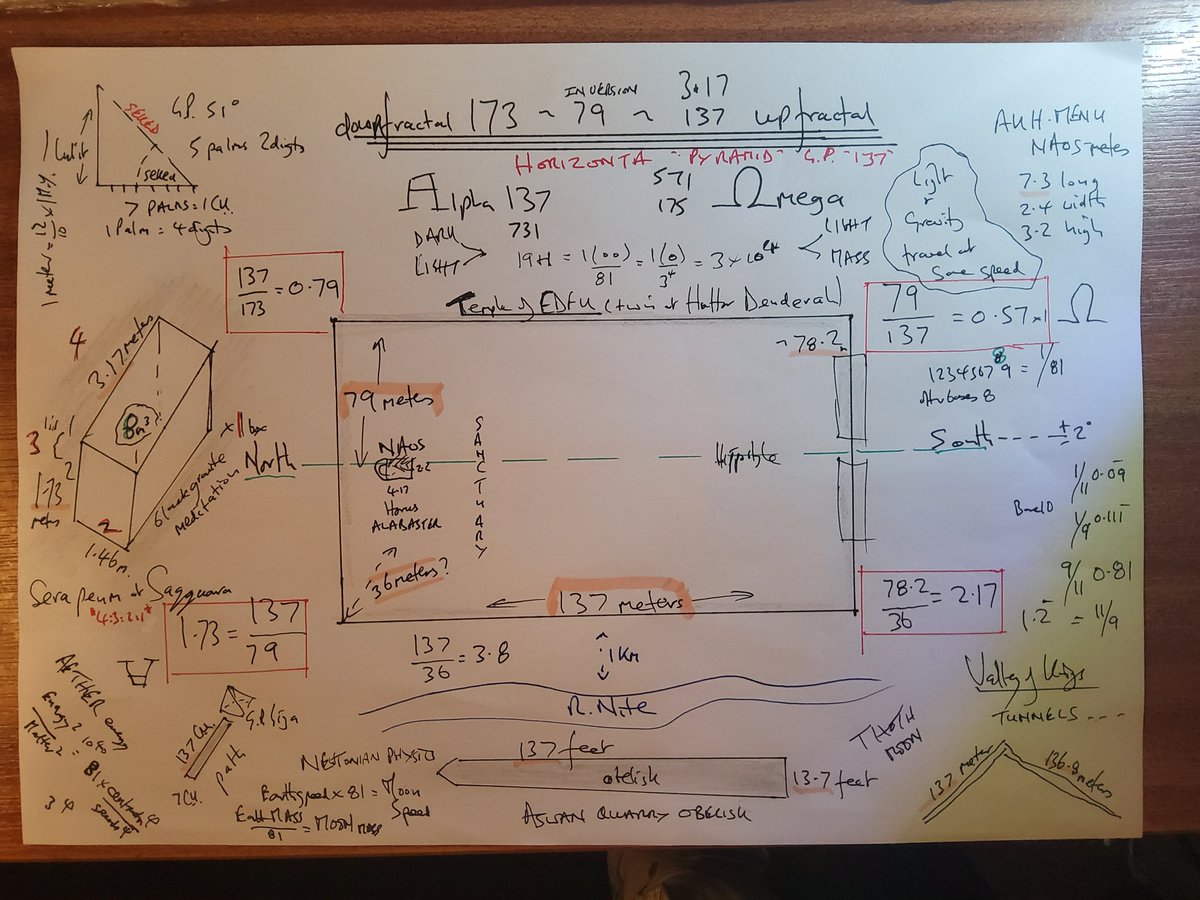 INVERSION
3.17
downfractal 173 ~ 79 ~ 137 upfractal
HORIZONTA - PYRAMID - G.P. "137"
G.P. 51°
SEKED
5 palms 2 digits
1 seked
7 PALMS = 1 CU.
1 Palm = 4 digits
1 meter = 12/10 x
Alpha 137
731
571
175
Omega
DARK
LIGHT
19H = 1(00)/81 = 1(0)/3⁴ = 3 x 10
LIGHT
MASS
Light
Gravity
travel at
Same speed
NAOS meters
7.3 long
2.4 width
3.2 high
137/173 = 0.79
79/137 = 0.57 x1 Ω
123456789 = 1/81
8
other bases 8
Temple of EDFU (twin of Hathor Denderah)
~78.2m
79 meters
NAOS
4.17
Horus
ALABASTER
SANCTUARY
36 meters?
137 meters
North
South ---- ± 2°
1/11 0.09
Base 10
1/9 0.111
9/11 0.81
1.2 = 11/9
4
3.17 meters
8m³
3
lid
1
2
1.73
meters
2
1.46m.
x 11 box
black granite
meditation
Serapeum of Saqquara
"4:3:2:1"
1.73 = 137/79
78.2/36 = 2.17
137/36 = 3.8
1 Km
R. Nile
Valley of Kings
TUNNELS ----
137 meter
136.8 meters
THOTH
MOON
AETHER energy
Energy²
Matter²
= 81 x
3 4
G.P. Giza
137 CU
path
7 CU.
NEWTONIAN PHYSIC
Earth speed x 81 = Moon
Speed
Earth MASS/81 = MOON MASS
137 feet
obelisk
13.7 feet
ASWAN QUARRY OBELISK